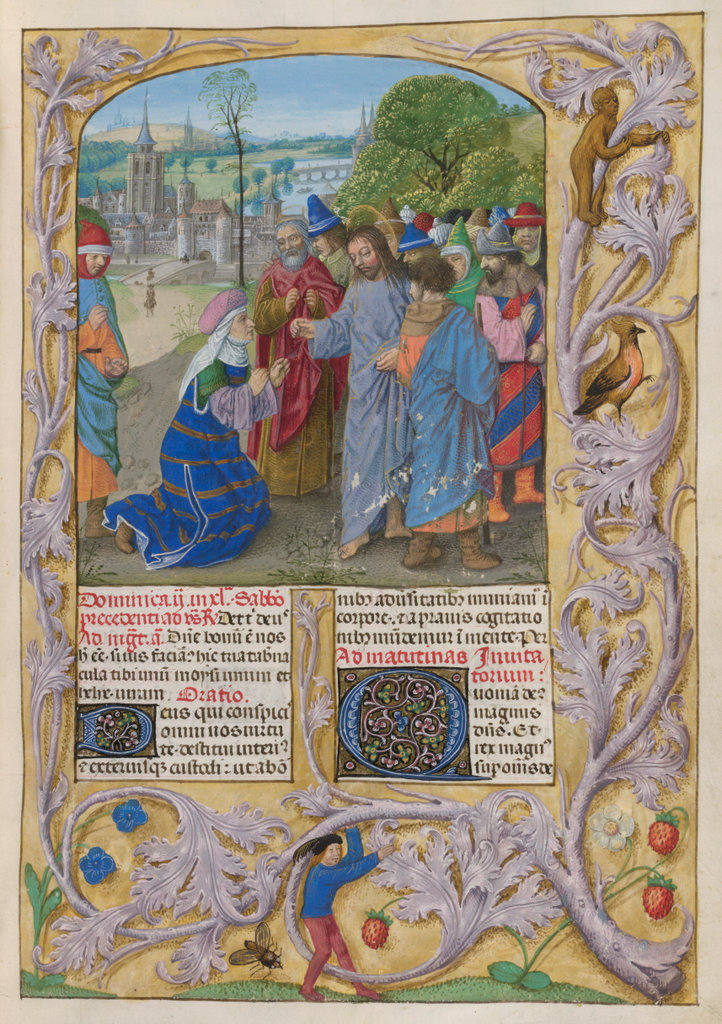 Dominica ij. in xl.ᵃ Sabbo
precedenti ad R
Ad mgt. a. Dn̄e bonū ē nos
h ēē. si uis faciaꝰ hic tria tabna
cula tibi unū moysi unum et
helye unum. Oratio.
Deus qui conspicꝭ
omni nos uirtu
te destitui interiꝰ
⁊ exteriusqꝫ custodi: ut ab ō
nibꝰ aduersitatibꝰ muniamꝰ ī
corpore. ⁊ a prauis cogitatio
nibꝰ mūdemur ī mente. Per
Ad matutinas Inuita
torium:
Quoniā deꝰ
magnus
dn̄s. Et
rex magnꝰ
sup om̄s de